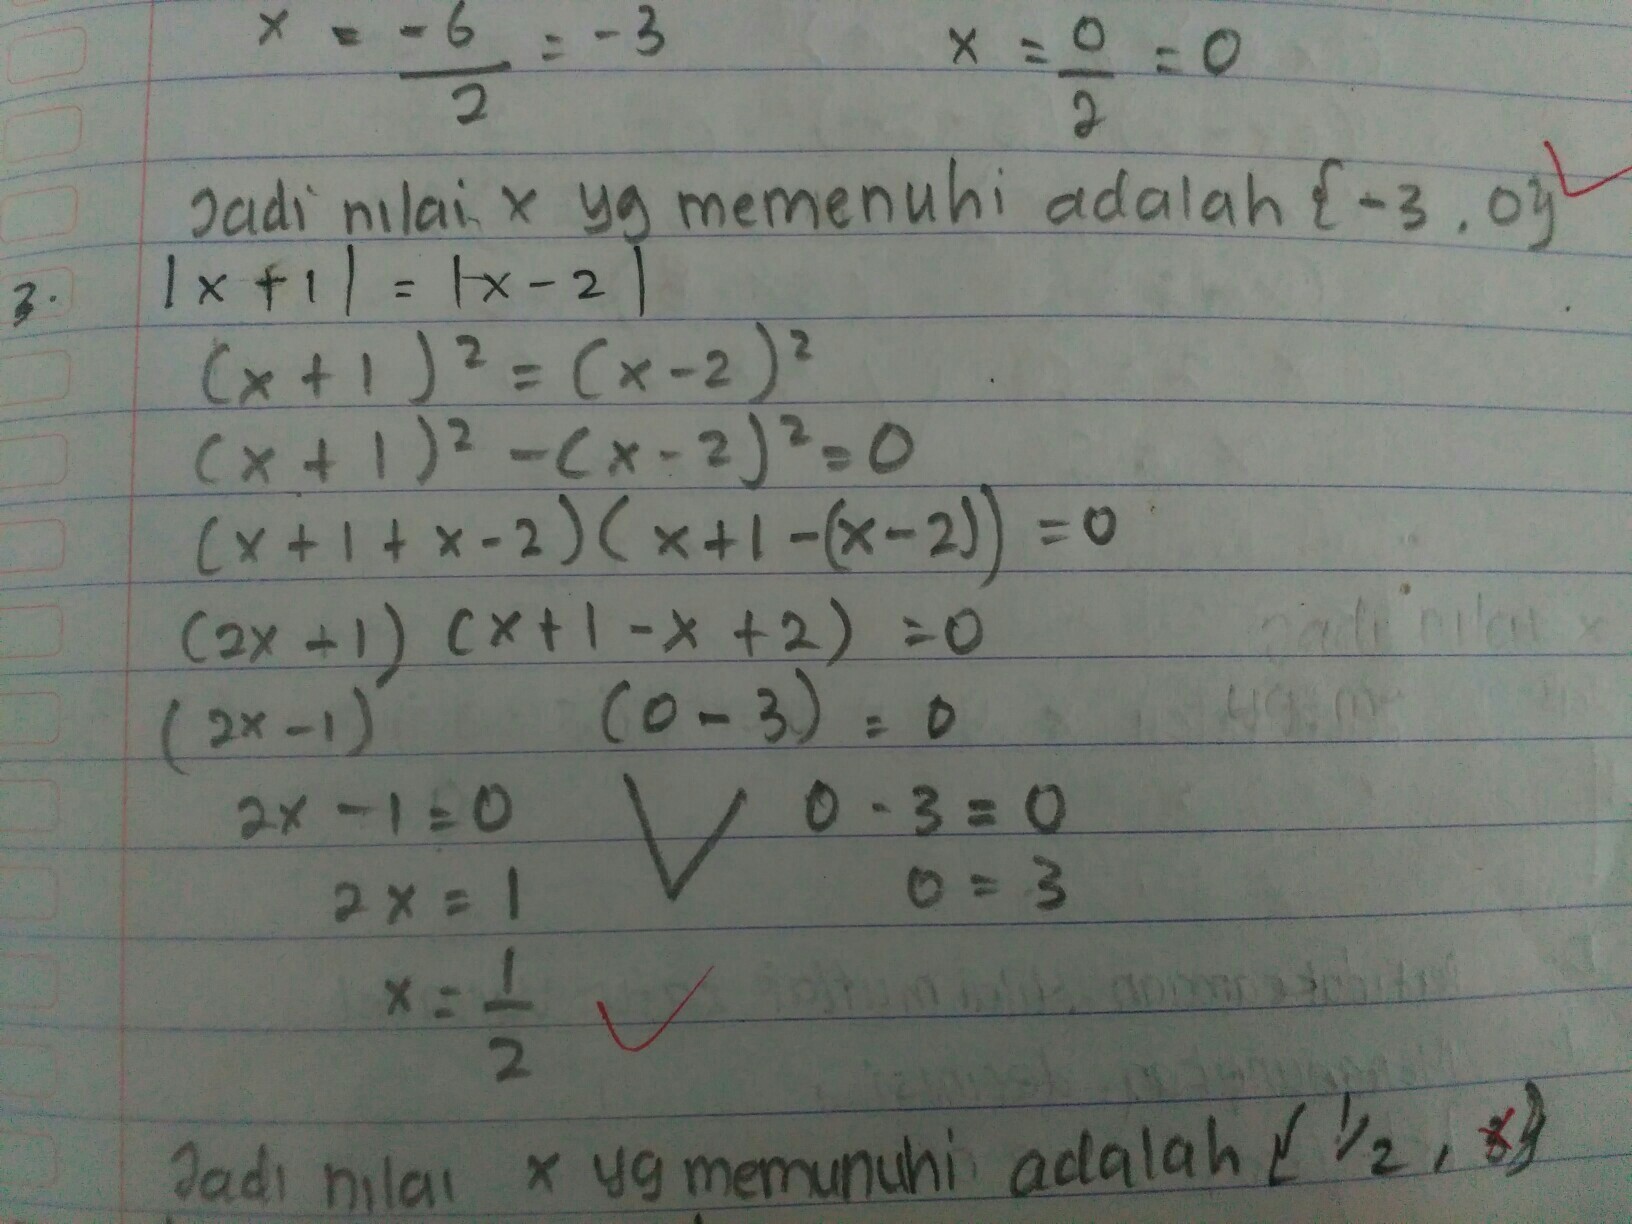 x = -6/2 = -3    x = 0/2 = 0
Jadi nilai x yg memenuhi adalah {-3, 0}
3. |x+1| = |x-2|
(x+1)² = (x-2)²
(x+1)² -(x-2)² = 0
(x+1+x-2)(x+1-(x-2)) = 0
(2x+1) (x+1-x+2) = 0
(2x-1)    (0-3) = 0
2x-1=0 V 0-3=0
2x=1    0=3
x = 1/2
Jadi nilai x yg memunuhi adalah { 1/2,